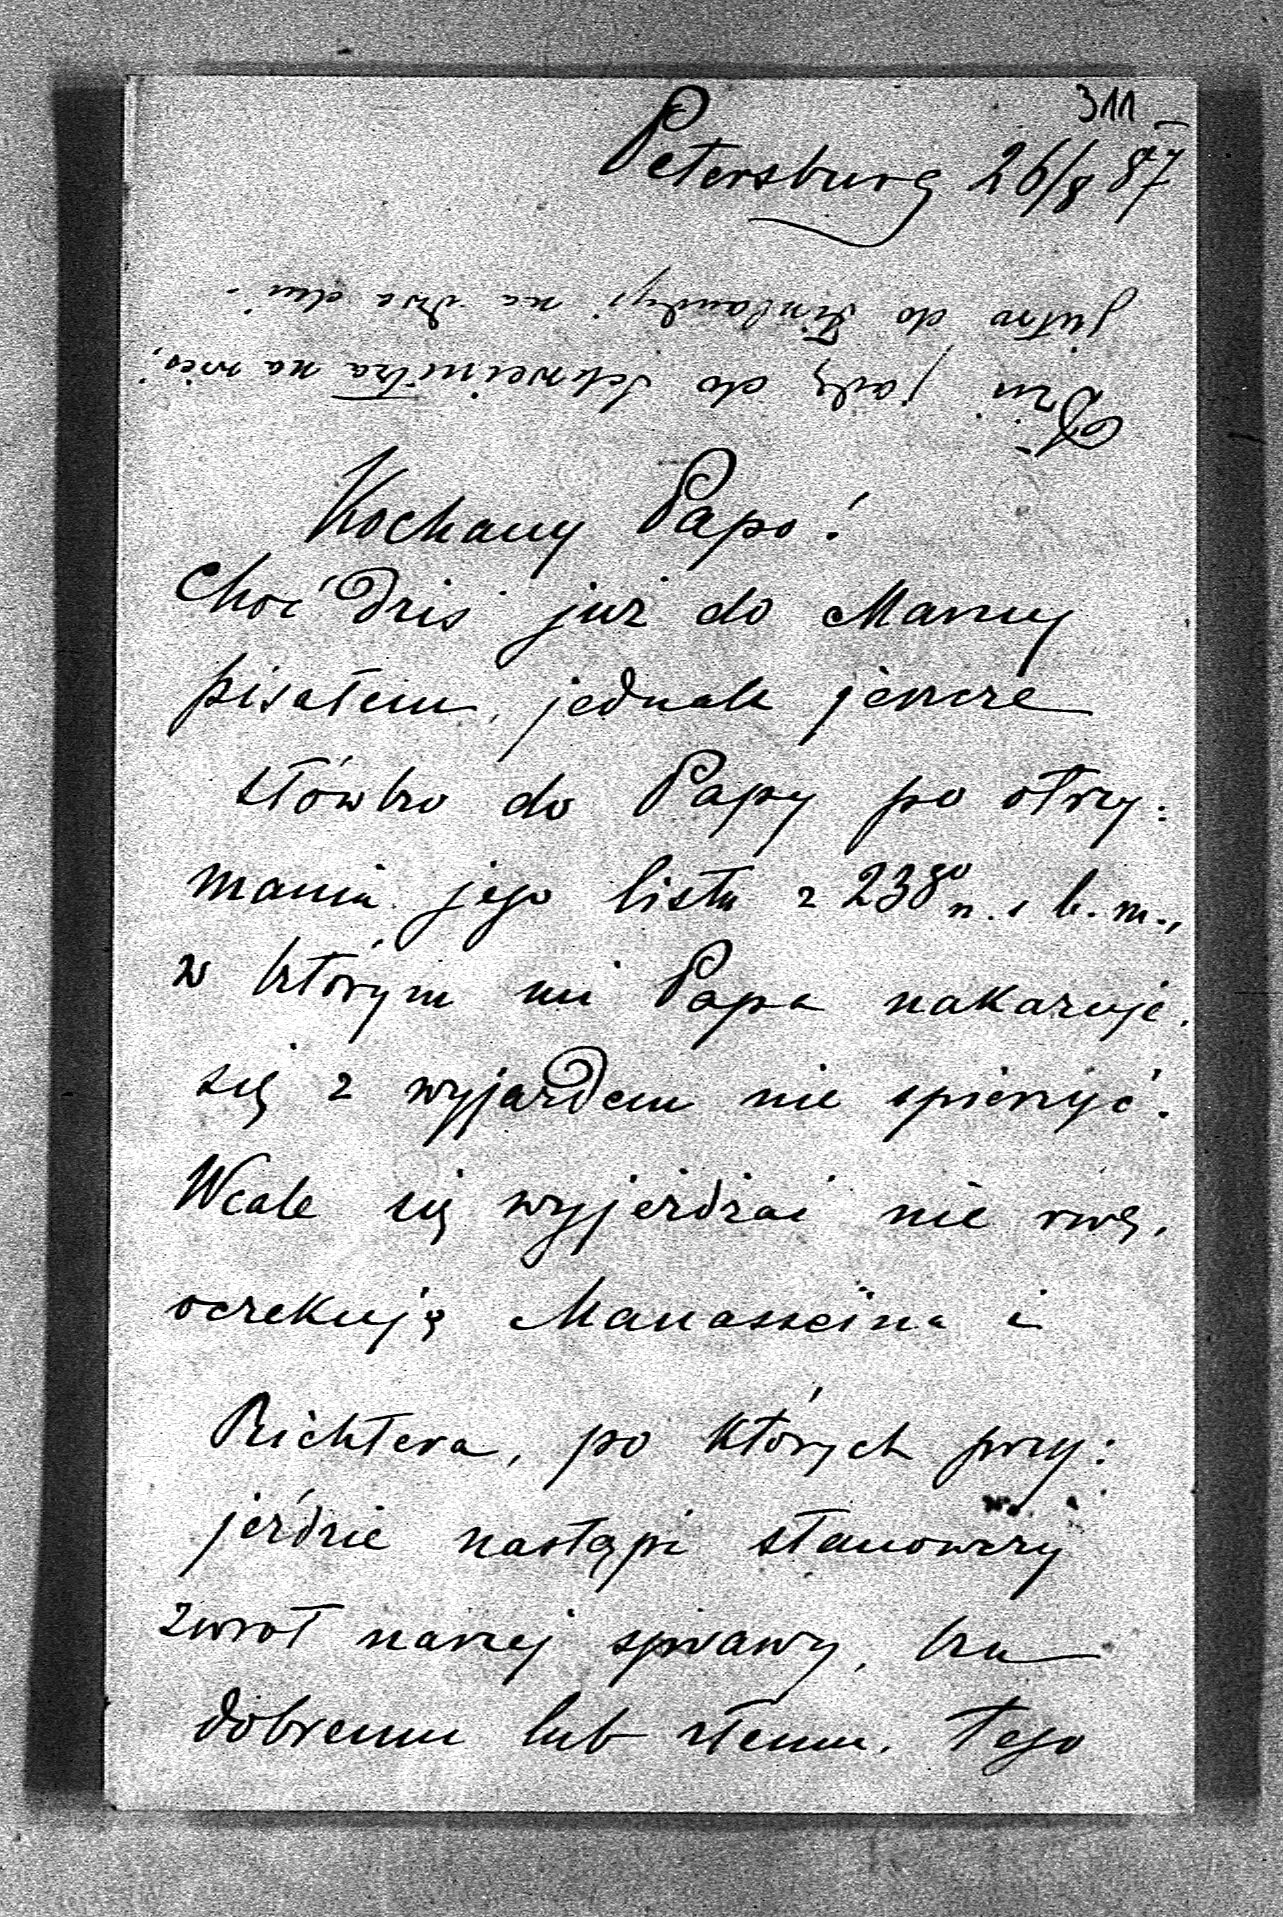 311
Petersburg 26/8 87
Dziś jadę do Schweinitza na wieś,
jutro do Finlandyi na dwa dni.
Kochany Papo!
Choć dziś już do Mamy
pisałem, jednak jeszcze
słówko do Papy po otrzy:
maniu jego listu z 238º n. s. b. m.,
w którym mi Papa nakazuje
się z wyjazdem nie spieszyć.
Wcale się wyjeżdżać nie rwę,
oczekuję Manasseina i
Richtera, po których przy:
jeździe nastąpi stanowczy
zwrot naszej sprawy, ku
dobremu lub złemu. Tego